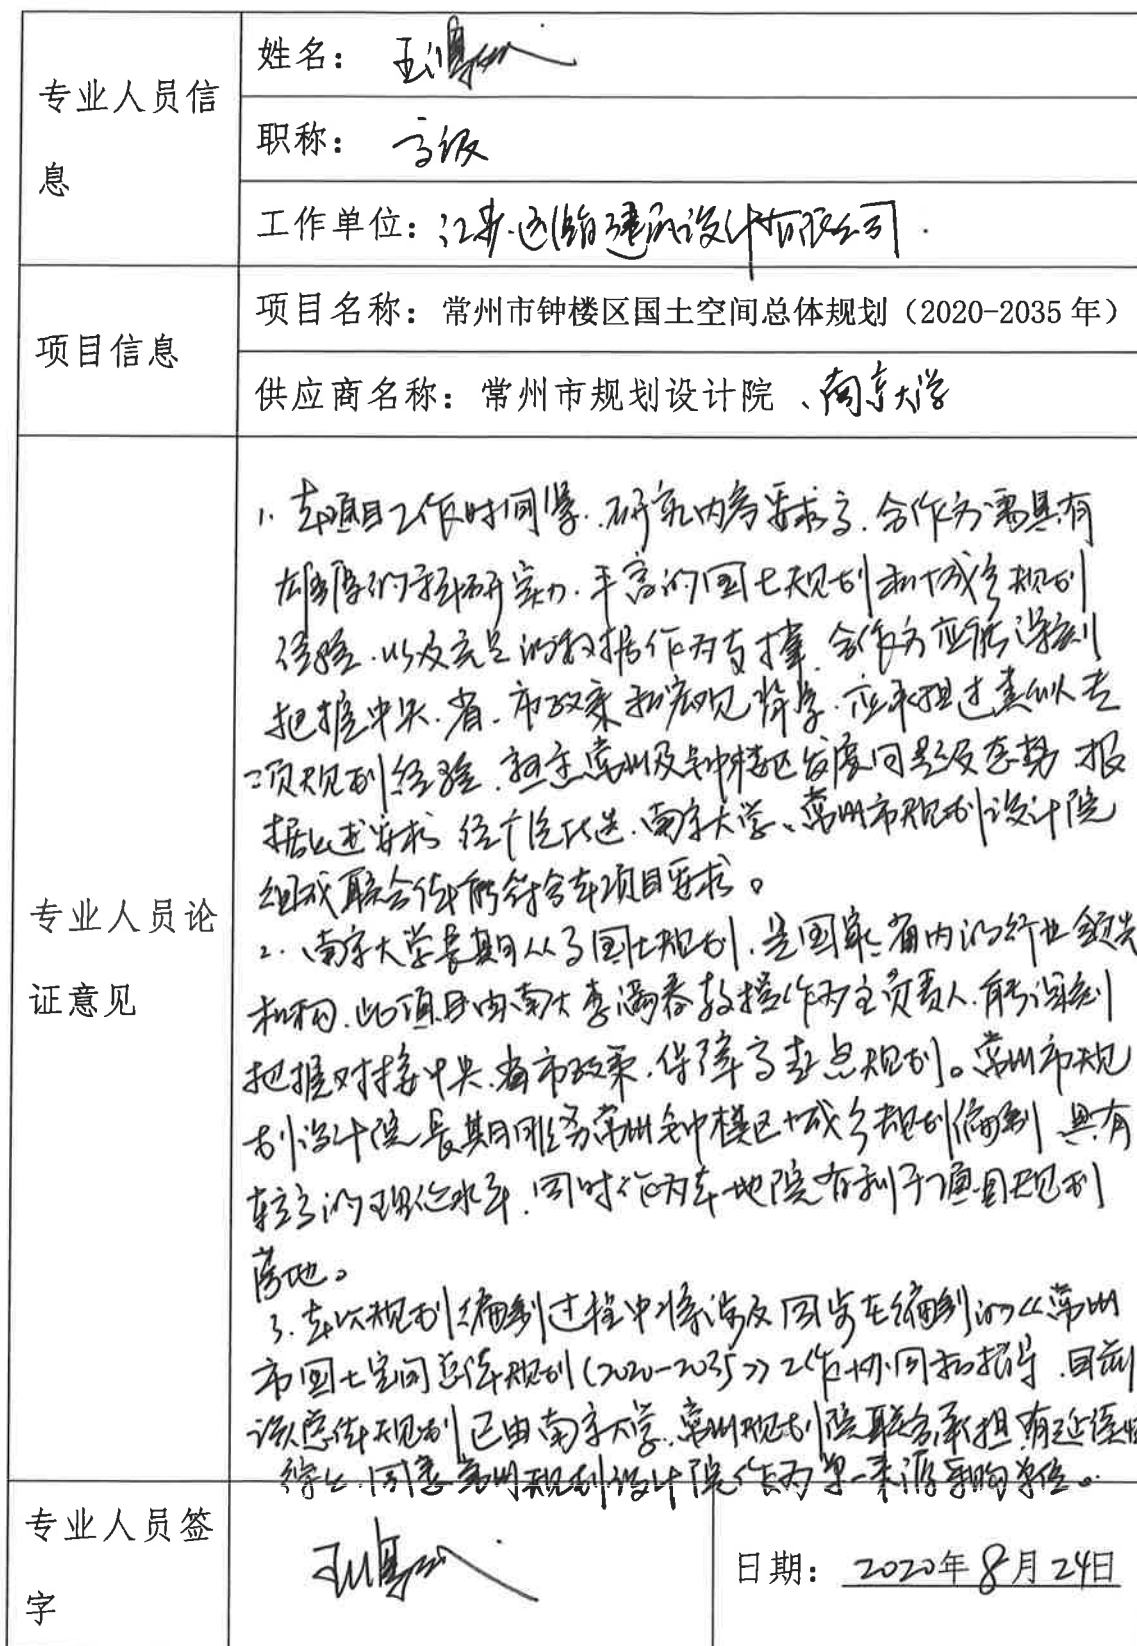 专业人员信息
姓名：
职称：高级
工作单位：江苏建筑设计有限公司.
项目信息
项目名称：常州市钟楼区国土空间总体规划（2020-2035年）
供应商名称：常州市规划设计院、南京大学
专业人员论证意见
1. 本项目工作时间紧、研究内容要求高，合作方需具有
雄厚的科研实力、丰富的国土规划和城乡规划
经验、以及充足的数据作为支撑，合作方应能深刻
把握中央、省、市政策和宏观背景，应承担过类似专
项规划经验，熟悉常州及钟楼区发展问题及态势，根
据上述要求，经优选，南京大学、常州市规划设计院
组成联合体能符合本项目要求。
2. 南京大学长期从事国土规划，是国家、省内的行业领先
机构，此项目由南大李满春教授作为主负责人，能深刻
把握对接中央、省市政策，保障高起点规划。常州市规
划设计院长期服务常州钟楼区城乡规划编制，具有
较高的理论水平，同时作为本地院有利于项目规划
落地。
3. 本次规划编制过程中将涉及同步在编制的《常州
市国土空间总体规划(2020-2035)》工作协同和指导，目前
该总体规划已由南京大学、常州规划院联合承担，有延续性
综上，同意常州规划设计院作为单一来源采购单位。
专业人员签字
日期：2020年8月24日